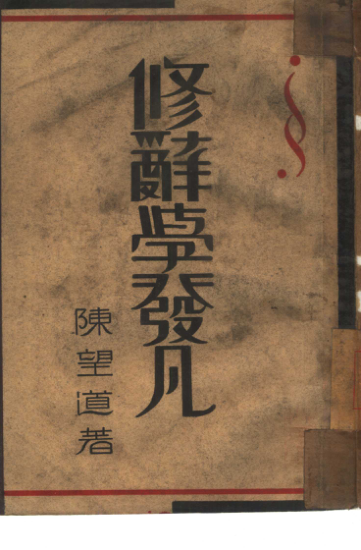 修辭學發凡
陳望道著